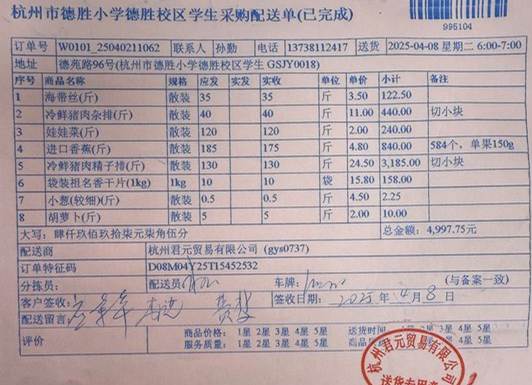 杭州市德胜小学德胜校区学生采购配送单(已完成)
995104
订单号 W0101_25040211062 联系人 孙勤 电话 13738112417 送货 2025-04-08 星期二 6:00-7:00
地址 德苑路96号(杭州市德胜小学德胜校区学生 GSJY0018)
序号 商品名称 规格 应发 实发 实收 单位 单价 小计 备注
1 海带丝(斤) 散装 35 35 斤 3.50 122.50
2 冷鲜猪肉杂排(斤) 散装 40 40 斤 11.00 440.00 切小块
3 娃娃菜(斤) 散装 120 120 斤 2.00 240.00
4 进口香蕉(斤) 散装 185 175 斤 4.80 840.00 584个，单果150g
5 冷鲜猪肉精子排(斤) 散装 130 130 斤 24.50 3,185.00 切小块
6 袋装祖名香干片(1kg) 1kg 10 10 袋 15.80 158.00
7 小葱(较细)(斤) 散装 0.5 0.5 斤 4.50 2.25
8 胡萝卜(斤) 散装 5 5 斤 2.00 10.00
大写：肆仟玖佰玖拾柒元柒角伍分 总金额：4,997.75元
配送商 杭州君元贸易有限公司 (gys0737)
订单特征码 D08M04Y25T15452532
分拣员: 配送员: 车牌: (与备案一致)
客户签收: 签收日期: 2025年4月8日
配送留言
评价 商品价格: 1星 2星 3星 4星 5星 送货时间: 1星 2星 3星 4星 5星
服务质量: 1星 2星 3星 4星 5星 4星 5星
杭州君元贸易有限公司
送货专用